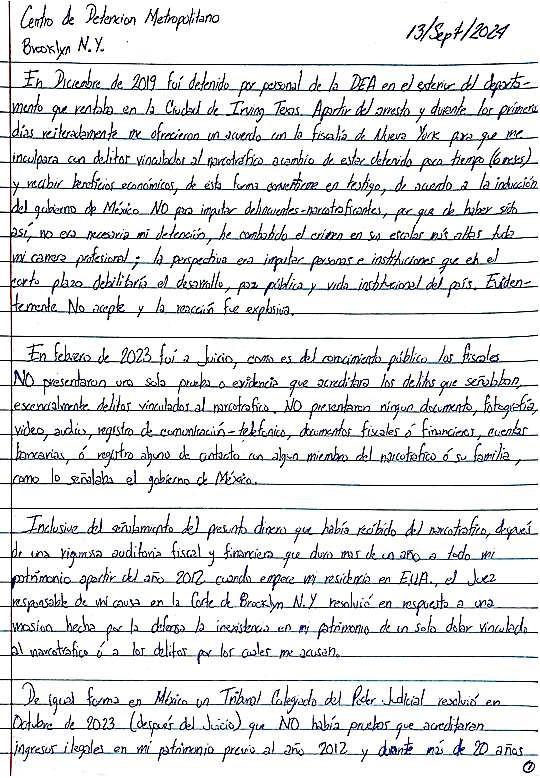 Centro de Detencion Metropolitano
Brooklyn N.Y.
13/Sept/2024
En Diciembre de 2019 fui detenido por personal de la DEA en el exterior del departa-
mento que rentaba en la Ciudad de Irving Texas. Apartir del arresto y durante los primeros
días reiteradamente me ofrecieron un acuerdo con la fiscalía de Nueva York para que me
inculpara con delitos vinculados al narcotráfico acambio de estar detenido poco tiempo (6 meses)
y recibir beneficios económicos, de esta forma convertirme en testigo, de acuerdo a la inducción
del gobierno de México NO para imputar delincuentes-narcotraficantes, por que de haber sido
así, no era necesaria mi detención, he combatido el crimen en sus escalas más altas toda
mi carrera profesional; la perspectiva era imputar personas e instituciones que en el
corto plazo debilitaría el desarrollo, paz pública y vida institucional del país. Eviden-
temente No acepte y la reacción fue explosiva.
En febrero de 2023 fui a Juicio, como es del conocimiento público los fiscales
NO presentaron una sola prueba o evidencia que acreditara los delitos que señalaban,
escencialmente delitos vinculados al narcotrafico. NO presentaron ningun documento, fotografía,
video, audio, registro de comunicación-telefonico, documentos fiscales ó financieros, cuentas
bancarias, ó registro alguno de contacto con algun miembro del narcotrafico ó su familia,
como lo señalaba el gobierno de México.
Inclusive del señalamiento del presunto dinero que había recibido del narcotrafico, después
de una rigurosa auditoria fiscal y financiera que duro mas de un año a todo mi
patrimonio apartir del año 2012 cuando empece mi residencia en EUA., el Juez
responsable de mi causa en la Corte de Brooklyn N.Y resolvió en respuesta a una
mosion hecha por la defensa la inexistencia en mi patrimonio de un solo dolar vinculado
al narcotrafico ó a los delitos por los cuales me acusan.
De igual forma en México un Tribunal Colegiado del Poder Judicial resolvió en
Octubre de 2023 (después del Juicio) que NO había pruebas que acreditaran
ingresos ilegales en mi patrimonio previo al año 2012 y durante más de 20 años
1